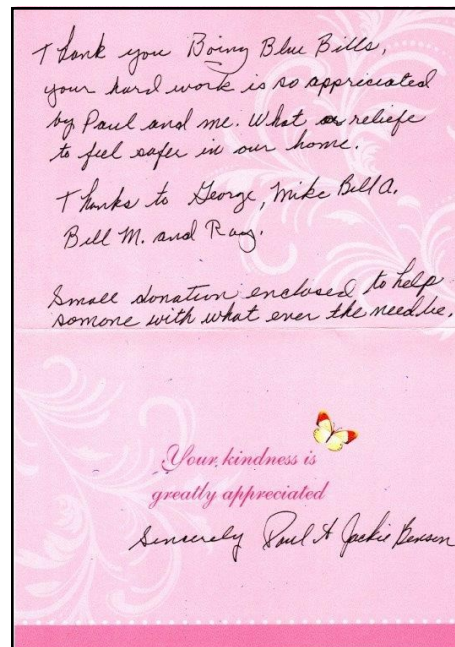 Thank you Boing Blue Bills,
your hard work is so appriciated
by Paul and me. What a reliefe
to feel safer in our home.
Thanks to George, Mike Bill A.
Bill M. and Ray.
Small donation enclosed to help
somone with what ever the need be.
Your kindness is
greatly appreciated
Sincerely Paul & Jackie Benson